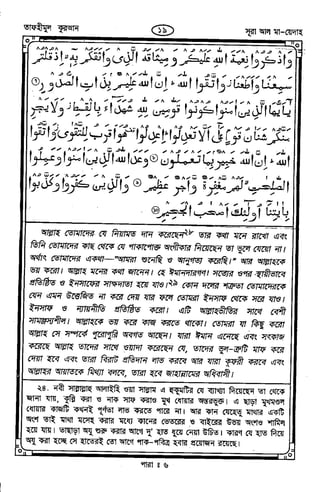 তাফহীমুল কুরআন
১৯
সূরা আল মা-য়েদাহ
وَاذْكُرُوا نِعْمَةَ اللهِ عَلَيْكُمْ وَمِيثَاقَهُ الَّذِي وَاثَقَكُمْ بِهِ إِذْ قُلْتُمْ
سَمِعْنَا وَأَطَعْنَا وَاتَّقُوا اللهَ إِنَّ اللهَ عَلِيمٌ بِذَاتِ الصُّدُورِ ۞
يَا أَيُّهَا الَّذِينَ آمَنُوا كُونُوا قَوَّامِينَ لِلَّهِ شُهَدَاءَ بِالْقِسْطِ وَلَا يَجْرِ
مَنَّكُمْ شَنَاٰنُ قَوْمٍ عَلَىٰ أَلَّا تَعْدِلُوا اعْدِلُوا هُوَ أَقْرَبُ لِلتَّقْوَىٰ وَاتَّقُوا
اللهَ إِنَّ اللهَ خَبِيرٌ بِمَا تَعْمَلُونَ ۞ وَعَدَ اللهُ الَّذِينَ آمَنُوا وَعَمِلُوا
الصَّالِحَاتِ لَهُمْ مَغْفِرَةٌ وَأَجْرٌ عَظِيمٌ ۞ وَالَّذِينَ كَفَرُوا وَكَذَّبُوا
بِآيَاتِنَا أُولَٰئِكَ أَصْحَابُ الْجَحِيمِ ۞
আল্লাহ তোমাদের যে নিয়ামত দান করেছেন তার কথা মনে রাখো এবং
তিনি তোমাদের কাছ থেকে যে পাকাপোক্ত অংগীকার নিয়েছেন তা ভুলে যেয়ো না।
অর্থাৎ তোমাদের একথা—"আমরা শুনেছি ও আনুগত্য করেছি।" আর আল্লাহকে
ভয় করো। আল্লাহ মনের কথা জানেন। হে ঈমানদারগণ! সত্যের ওপর স্থায়ীভাবে
প্রতিষ্ঠিত ও ইনসাফের সাক্ষ্যদাতা হয়ে যাও। কোন দলের শত্রুতা তোমাদেরকে
যেন এমন উত্তেজিত না করে দেয় যার ফলে তোমরা ইনসাফ থেকে সরে যাও।
ইনসাফ ও ন্যায়নীতি প্রতিষ্ঠিত করো। এটি আল্লাহভীতির সাথে বেশী
সামঞ্জস্যশীল। আল্লাহকে ভয় করে কাজ করতে থাকো। তোমরা যা কিছু করো
আল্লাহ সে সম্পর্কে পুরোপুরি অবগত আছেন। যারা ঈমান এনেছে এবং সৎকাজ
করেছে আল্লাহ তাদের সাথে ওয়াদা করেছেন যে, তাদের ভুল-ত্রুটি মাফ করে
দেয়া হবে এবং তারা বিরাট প্রতিদান লাভ করবে আর যারা কুফরী করবে এবং
আল্লাহর আয়াতকে মিথ্যা বলবে, তারা হবে জাহান্নামের অধিবাসী।
২৪. নবী সাল্লাল্লাহু আলাইহি ওয়া সাল্লাম এ হুকুমটির যে ব্যাখ্যা দিয়েছেন তা থেকে
জানা যায়, কুল্লি করা ও নাক সাফ করাও মুখ ধোয়ার অন্তরভুক্ত। এ ছাড়া মুখমণ্ডল
ধোয়ার কাজটি কখনই পূর্ণতা লাভ করতে পারে না। আর কান যেহেতু মাথার একটি
অংশ তাই মাথা মসেহ করার মধ্যে কানের ভেতরের ও বাইরের উভয় অংশও শামিল
হয়ে যায়। তাছাড়া অযু শুরু করার আগে দু' হাত ধুয়ে নেয়া উচিত। কারণ যে হাত দিয়ে
অযু করা হচ্ছে সে হাতেরই তো আগে পাক-পবিত্র হবার প্রয়োজন রয়েছে।
পারা ঃ ৬